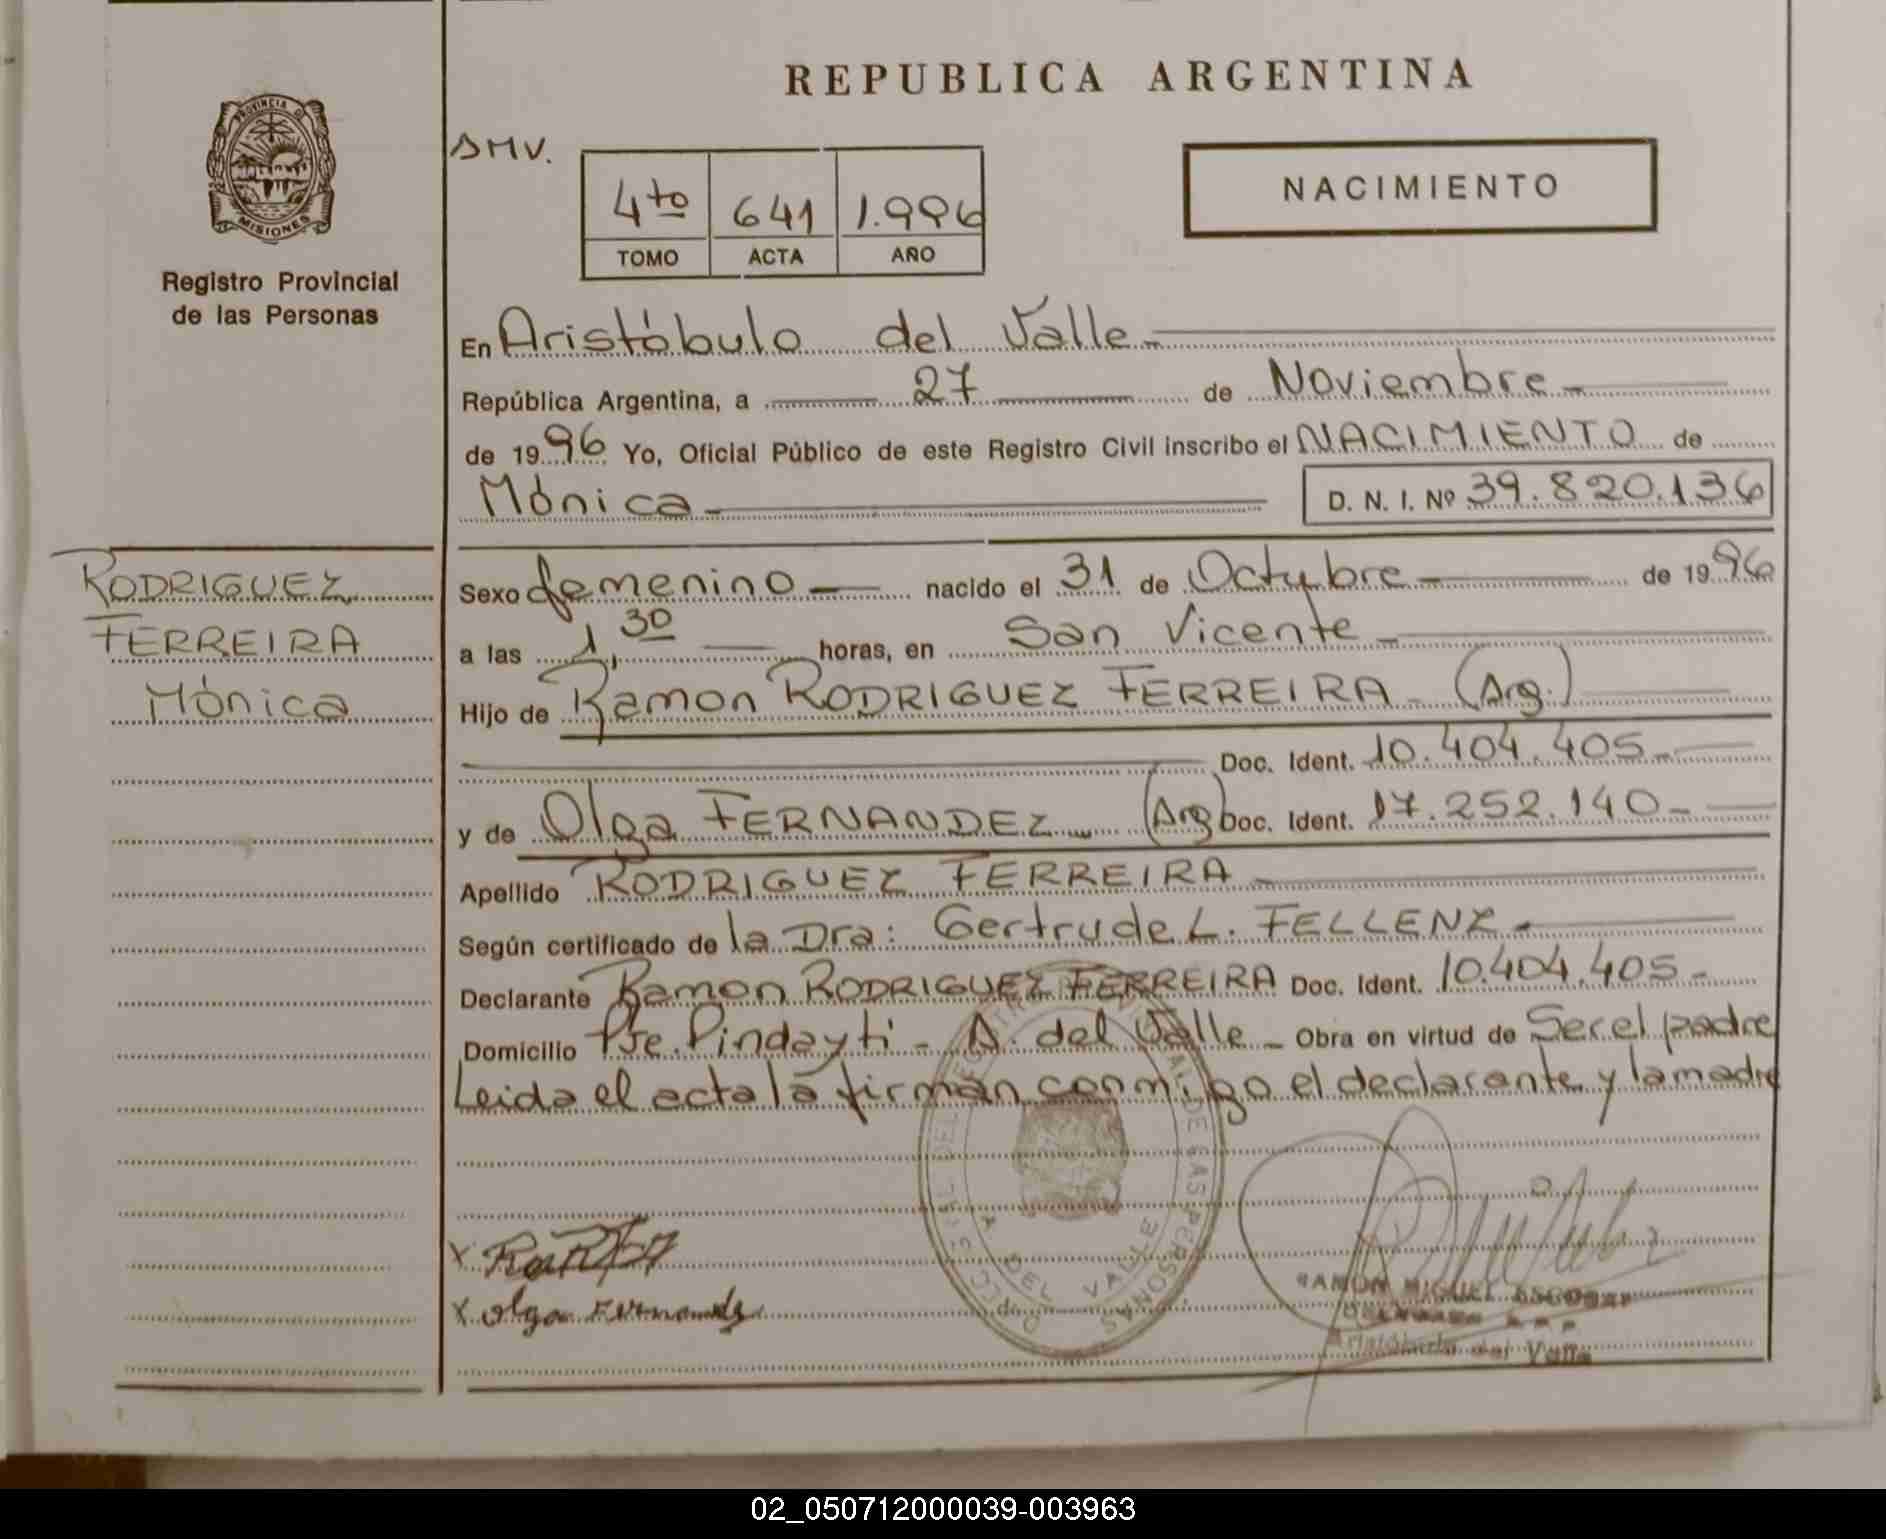 REPUBLICA ARGENTINA
PROVINCIA DE
MISIONES
Registro Provincial
de las Personas
SMV.
4to 641 1.996
TOMO ACTA AÑO
NACIMIENTO
En Aristóbulo del Valle.-
República Argentina, a 27 de Noviembre.-
de 1996 Yo, Oficial Público de este Registro Civil inscribo el NACIMIENTO de
Mónica.- D. N. I. Nº 39.820.136
RODRIGUEZ
FERREIRA
Mónica
Sexo femenino nacido el 31 de Octubre.- de 1996
a las 1,30 horas, en San Vicente.-
Hijo de Ramon RODRIGUEZ FERREIRA.- (Arg.)
Doc. Ident. 10.404.405.-
y de Olga FERNANDEZ (Arg) Doc. Ident. 17.252.140.-
Apellido RODRIGUEZ FERREIRA.-
Según certificado de la Dra: Gertrude L. FELLENZ.-
Declarante Ramon RODRIGUEZ FERREIRA Doc. Ident. 10.404.405.-
Domicilio Pje. Pindayti - A. del Valle.- Obra en virtud de Ser el padre
Leida el acta la firman conmigo el declarante y la madre
A DEL VALLE
DE LAS PERSONAS
Olga Fernandez
RAMON MIGUEL ESCOBAR
Aristóbulo del Valle
02_050712000039-003963